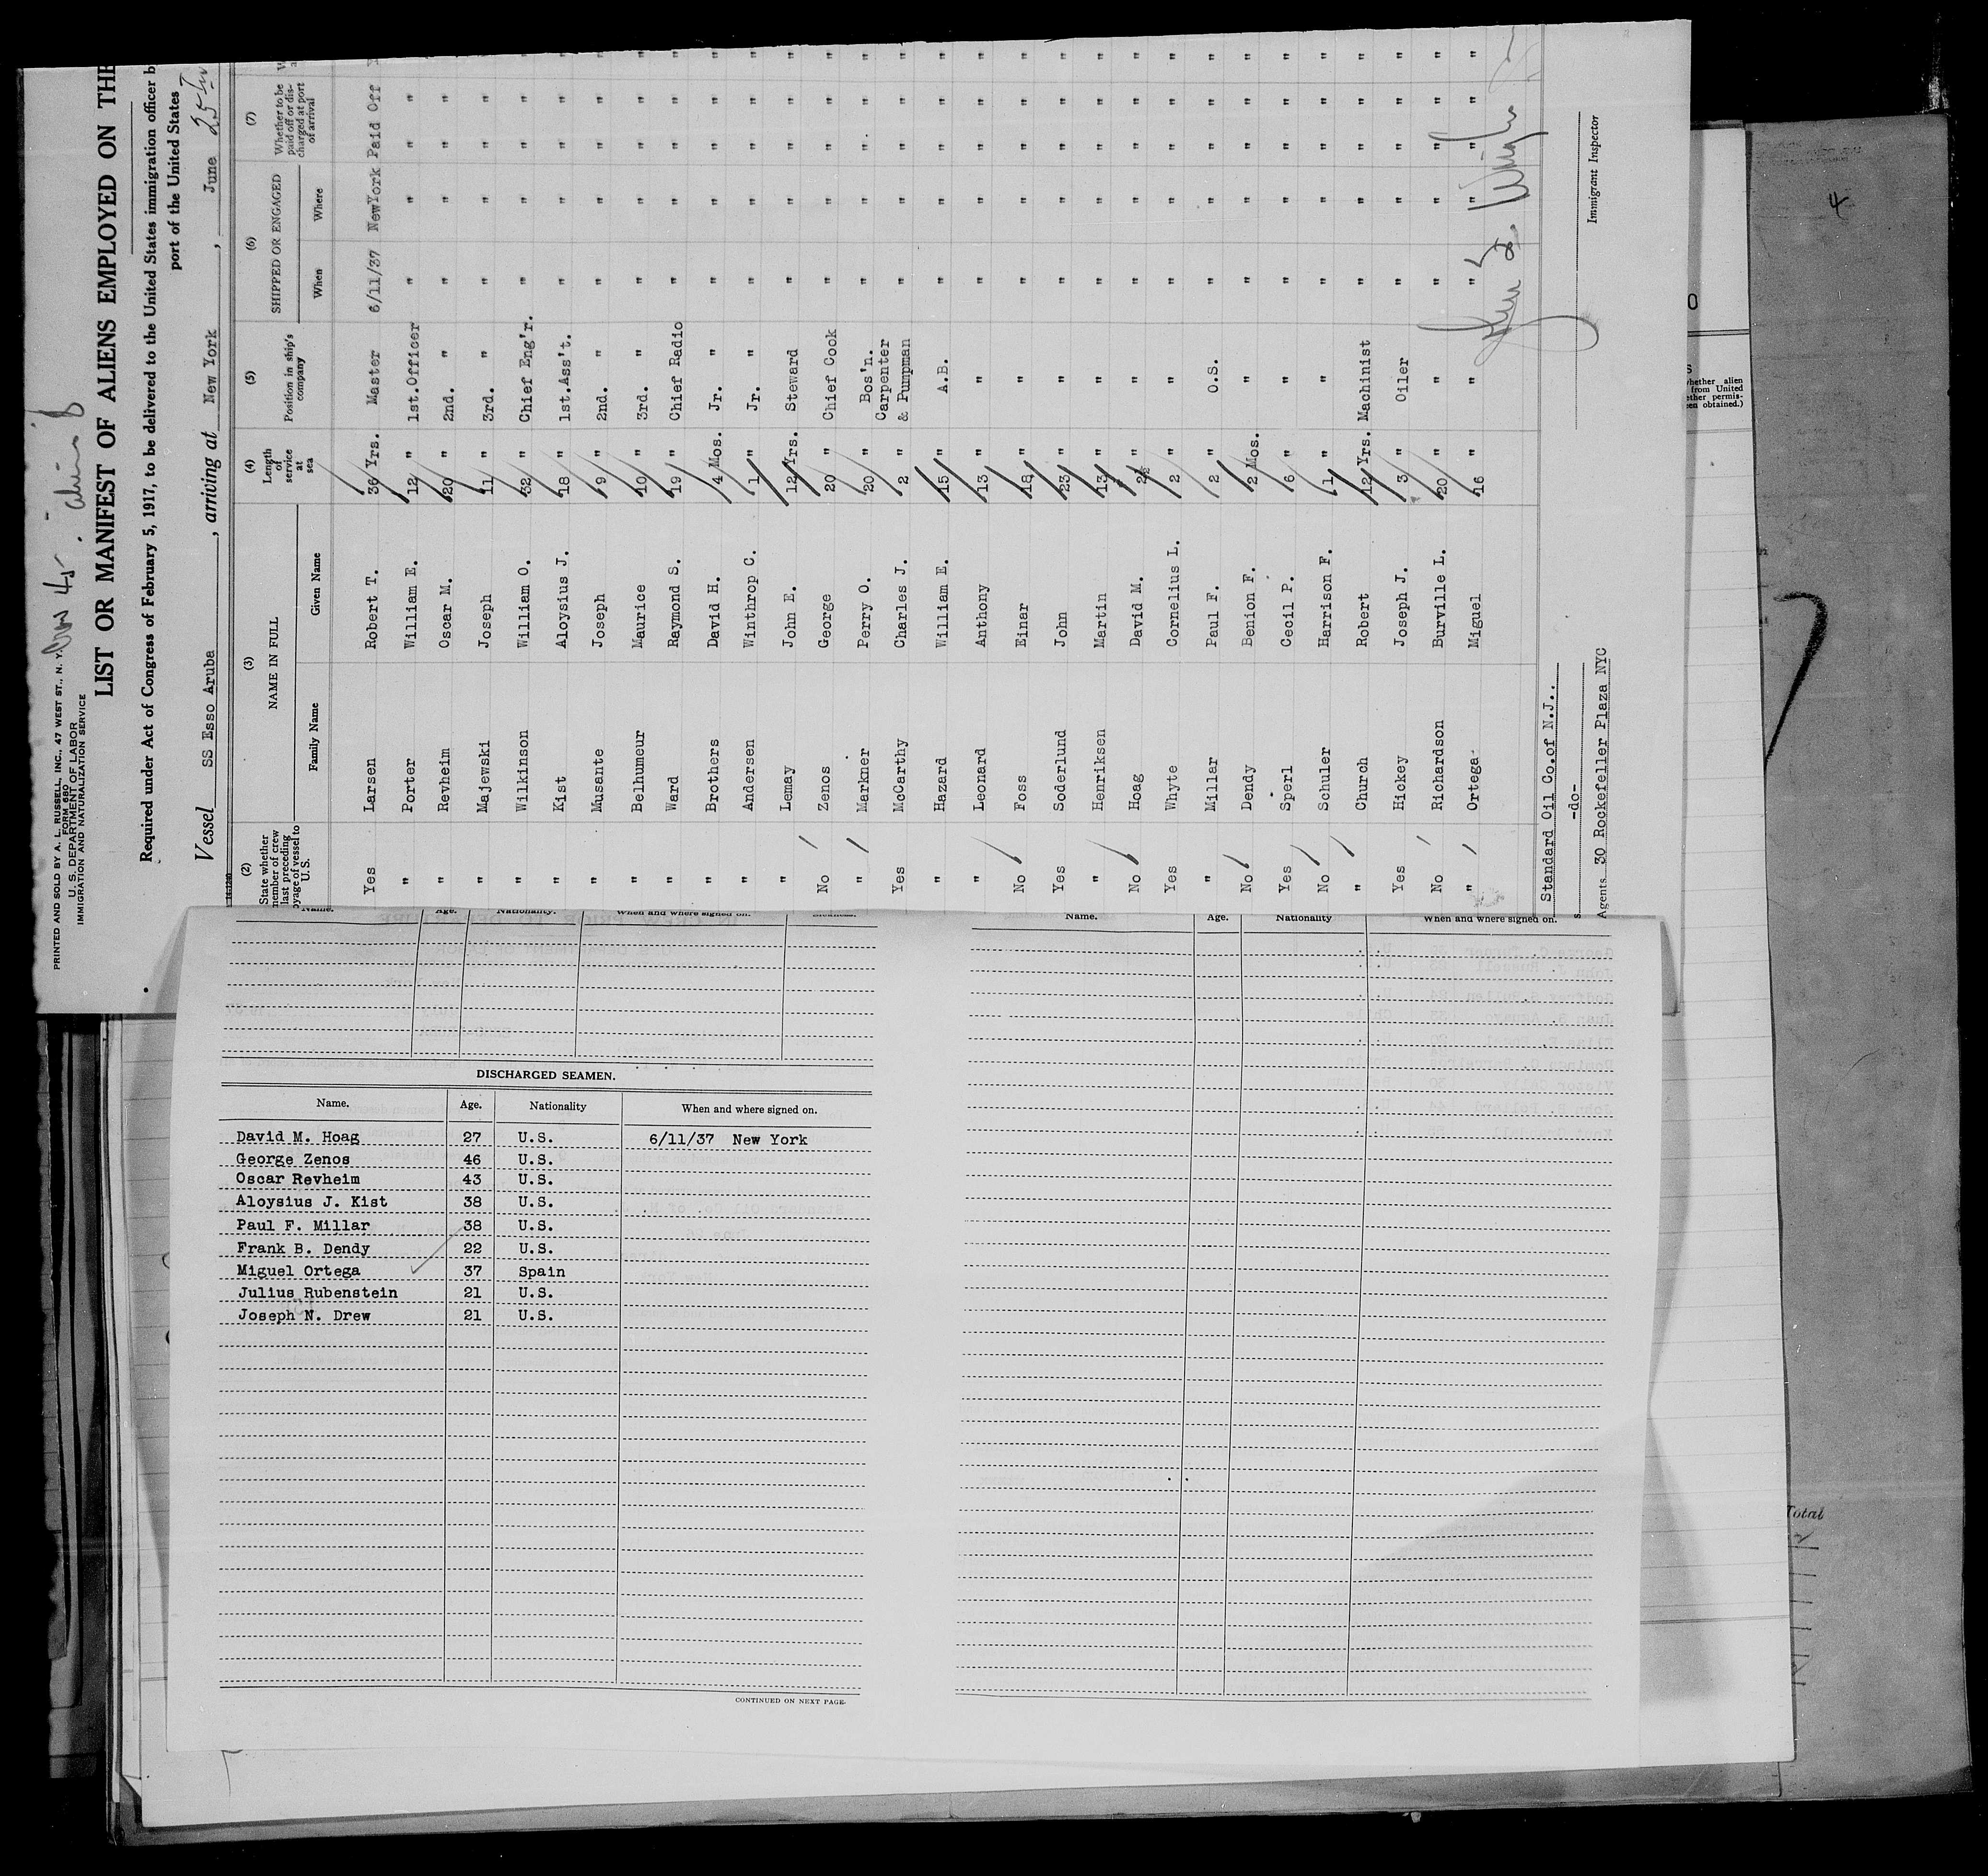 PRINTED AND SOLD BY A. L. RUSSELL, INC., 47 WEST ST., N. Y.
FORM 680
U. S. DEPARTMENT OF LABOR
IMMIGRATION AND NATURALIZATION SERVICE
LIST OR MANIFEST OF ALIENS EMPLOYED ON THE
Required under Act of Congress of February 5, 1917, to be delivered to the United States immigration officer b
port of the United States
Vessel SS Esso Aruba, arriving at New York, June 25th
(2) (3) (4) (5) (6) (7)
State whether member of crew last preceding voyage of vessel to U.S. NAME IN FULL Length of service at sea Position in ship's company SHIPPED OR ENGAGED Whether to be paid off or discharged at port of arrival
Family Name Given Name When Where
Yes Larsen Robert T. 36 Yrs. Master 6/11/37 NewYork Paid Off
" Porter William E. 12 " 1st.Officer " " " "
" Revheim Oscar M. 20 " 2nd. " " " " "
" Majewski Joseph 11 " 3rd. " " " " "
" Wilkinson William O. 32 " Chief Eng'r. " " " "
" Kist Aloysius J. 18 " 1st.Ass't. " " " "
" Musante Joseph 9 " 2nd. " " " " "
" Belhumeur Maurice 10 " 3rd. " " " " "
" Ward Raymond S. 19 " Chief Radio " " " "
" Brothers David H. 4 Mos. Jr. " " " " "
" Andersen Winthrop C. 1 " Jr. " " " " "
" Lemay John E. 12 Yrs. Steward " " " "
No Zenos George 20 " Chief Cook " " " "
" Markner Perry O. 20 " Bos'n. " " " "
Yes McCarthy Charles J. 2 " Carpenter & Pumpman " " " "
" Hazard William E. 15 " A.B. " " " "
" Leonard Anthony 13 " " " " " "
No Foss Einar 18 " " " " " "
Yes Soderlund John 23 " " " " " "
" Henriksen Martin 13 " " " " " "
No Hoag David M. 2½ " " " " " "
Yes Whyte Cornelius L. 2 " " " " " "
" Millar Paul F. 2 " O.S. " " " "
No Dendy Benion F. 2 Mos. " " " " "
Yes Sperl Cecil P. 6 " " " " " "
No Schuler Harrison F. 1 " " " " " "
" Church Robert 12 Yrs. Machinist " " " "
Yes Hickey Joseph J. 3 " Oiler " " " "
No Richardson Burville L. 20 " " " " " "
" Ortega Miguel 16 " " " " " "
Standard Oil Co.of N.J..
-do-
Agents 30 Rockefeller Plaza NYC
Immigrant Inspector
Name. Age. Nationality. When and where signed on.
Name. Age. Nationality When and where signed on.
DISCHARGED SEAMEN.
Name. Age. Nationality When and where signed on.
David M. Hoag 27 U.S. 6/11/37 New York
George Zenos 46 U.S.
Oscar Revheim 43 U.S.
Aloysius J. Kist 38 U.S.
Paul F. Millar 38 U.S.
Frank B. Dendy 22 U.S.
Miguel Ortega 37 Spain
Julius Rubenstein 21 U.S.
Joseph N. Drew 21 U.S.
CONTINUED ON NEXT PAGE.
4
0
whether alien
from United
ether permis-
een obtained.)
Total